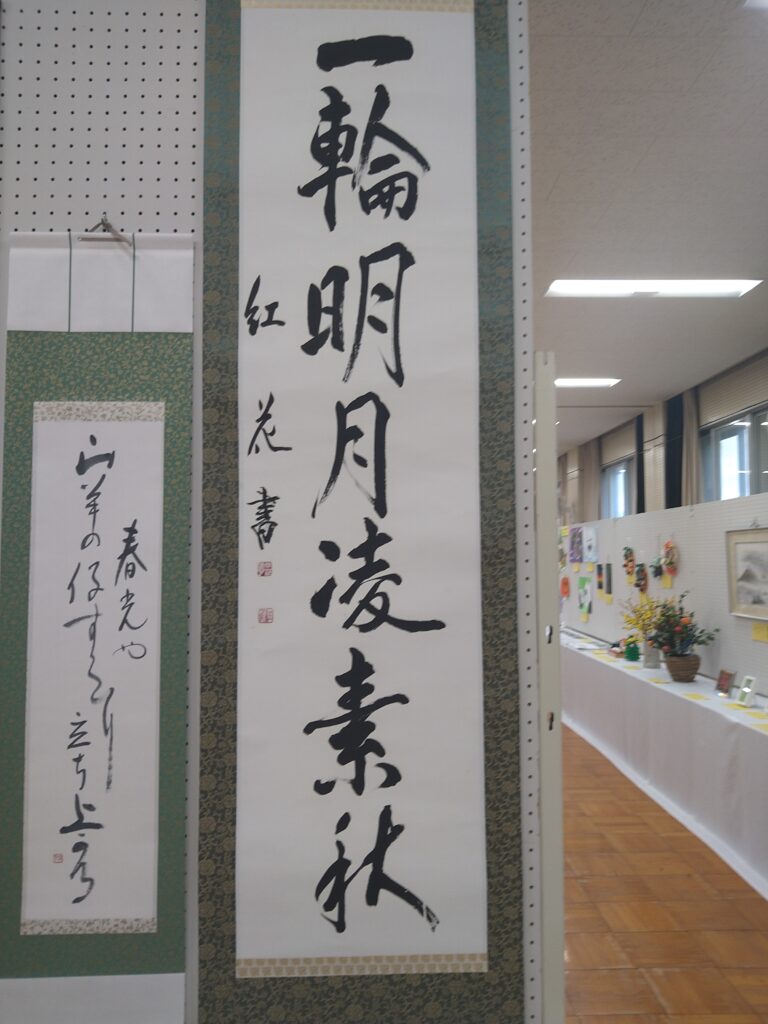 一輪明月凌素秋
紅花書
春光や
山羊の仔すつくり立ち上る